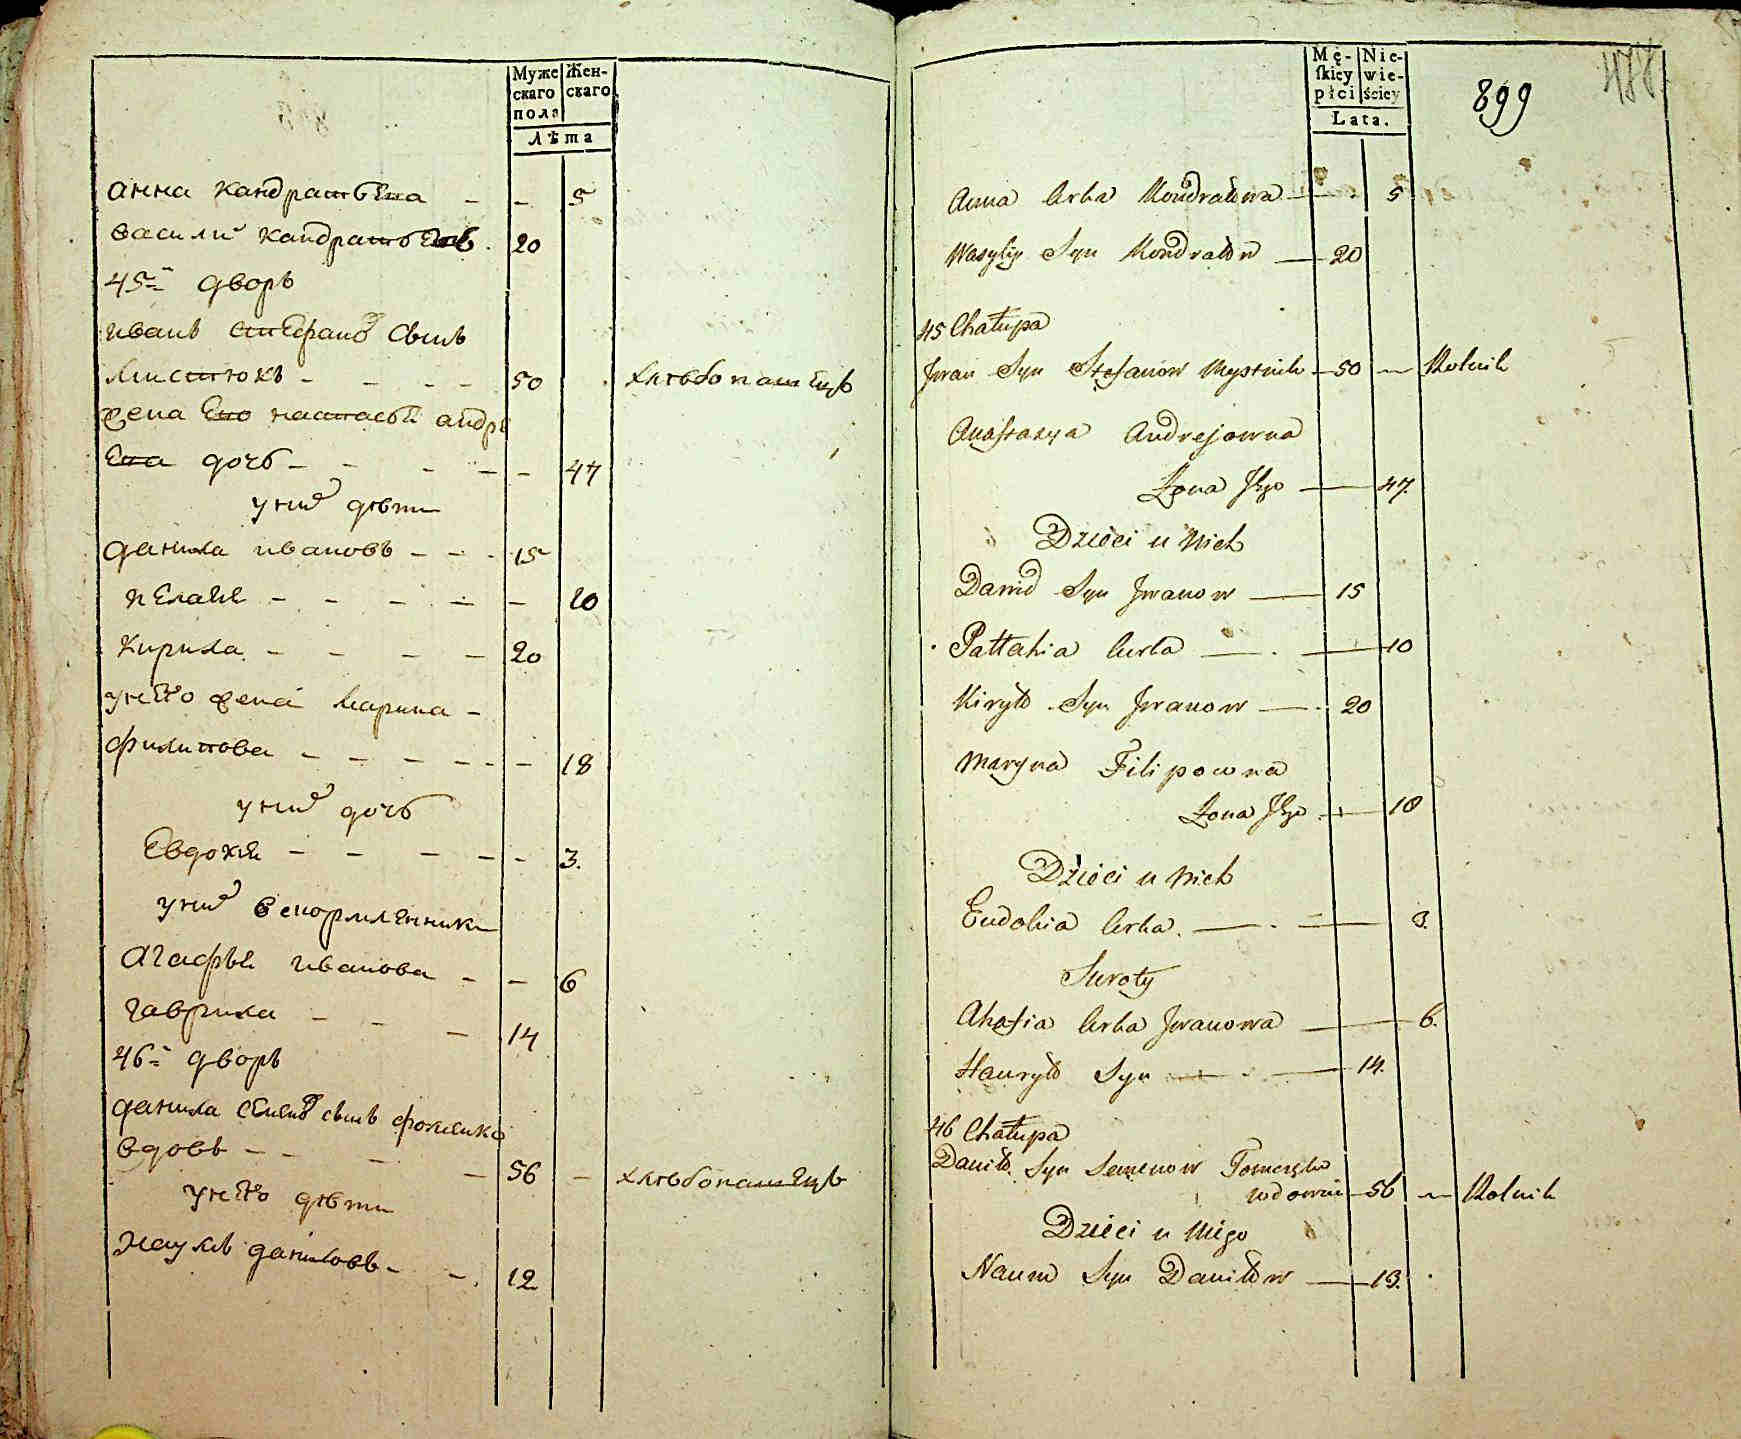 Муже
скаго
пола
Жен-
скаго
Лѣта
анна кандратьева - - 5
василий кандратьевъ . 20
45й дворъ
иванъ стефановъ сынъ
мистюкъ - - - - 50 хлебопашецъ
жена Его настасья андре
Ева дочь - - - - - 47
у них дѣти
данила ивановъ - - - 15
пелагѣя - - - - - 10
кирила - - - - 20
у него жена марина -
филипова - - - - - - 18
у них дочь
Евдокия - - - - - 3.
у них
агафья иванова - - 6
гаврила - - - 14
46й дворъ
данила семеновъ сынъ
вдовъ - - - - 56 - хлебопашецъ
у него дѣти
наумъ даниловъ - - . 12
Mę-
skiey
płci
Nie-
wie-
ściey
Lata.
899
488
Anna Corka Kondratowa 5
Wasyliy Syn Kondratow 20
45 Chałupa
Jwan Syn Stefanow Mystiuk 50 Rolnik
Anastazya Andrejowna
Żona Jego 47.
Dzieci u Nich
Danid Syn Jwanow 15
Pallahia Curka 10
Kiryło Syn Jwanow 20
Maryna Filipowna
Żona Jego 18
Dzieci u Nich
Eudokia Corka. 3.
Siroty
Ahafia Corka Jwanowa 6.
Hauryło Syn 14.
46 Chałupa
Daniło Syn Semenow
wdowiec 56 Rolnik
Dzieci u Niego
Naum Syn Daniłow 13.